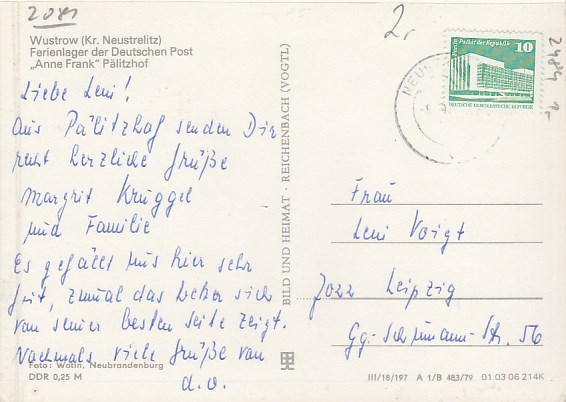 2041
2,-
Wustrow (Kr. Neustrelitz)
Ferienlager der Deutschen Post
„Anne Frank" Pälitzhof
Berlin Palast der Republik
10
DEUTSCHE DEMOKRATISCHE REPUBLIK
2484 1,-
NEUS
Liebe Leni!
Aus Pälitzhof senden Dir
recht herzliche Grüße
Margrit Kruggel
und Familie
Es gefällt uns hier sehr
gut, zumal das Wetter sich
von seiner besten Seite zeigt.
Nochmals viele Grüße von
d. o.
Foto: Wotin, Neubrandenburg
DDR 0,25 M
BILD UND HEIMAT · REICHENBACH (VOGTL)
Frau
Leni Voigt
7022 Leipzig
Gg.-Schumann-Str. 56
III/18/197 A 1/B 483/79 01 03 06 214K